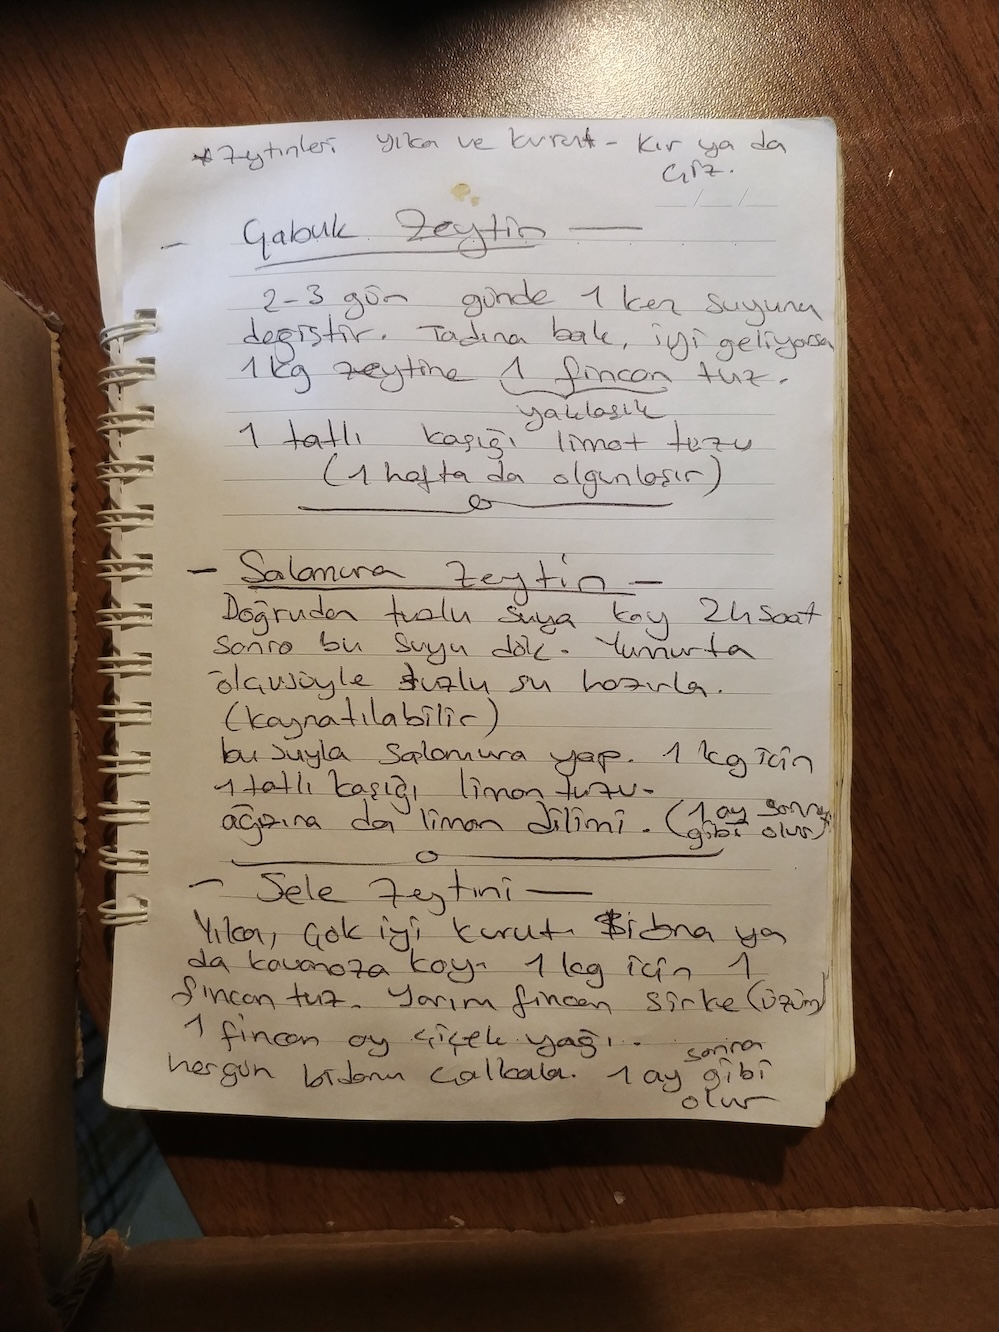 * Zeytinleri yıka ve kurut - kır ya da
çiz.
- Çabuk Zeytin -
2-3 gün günde 1 kez suyunu
değiştir. Tadına bak, iyi geliyorsa
1 kg zeytine 1 fincan tuz.
yaklaşık
1 tatlı kaşığı limon tuzu
(1 hafta da olgunlaşır)
- Salamura Zeytin -
Doğrudan tuzlu suya koy 24 saat
sonra bu suyu dök. Yumurta
ölçüsüyle tuzlu su hazırla.
(kaynatılabilir)
bu suyla salamura yap. 1 kg için
1 tatlı kaşığı limon tuzu-
ağzına da limon dilimi. (1 ay sonra
gibi olur)
- Sele Zeytini -
Yıka, çok iyi kurut. Bidona ya
da kavanoza koy. 1 kg için 1
fincan tuz. Yarım fincan sirke (üzüm)
1 fincan ay çiçek yağı.
hergün bidonu çalkala. 1 ay sonra gibi
olur